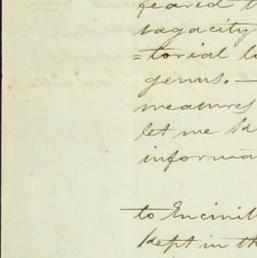 feared t
sagacity
=torial l
genus. —
measures
let me k
informa
to Encinit
kept in th